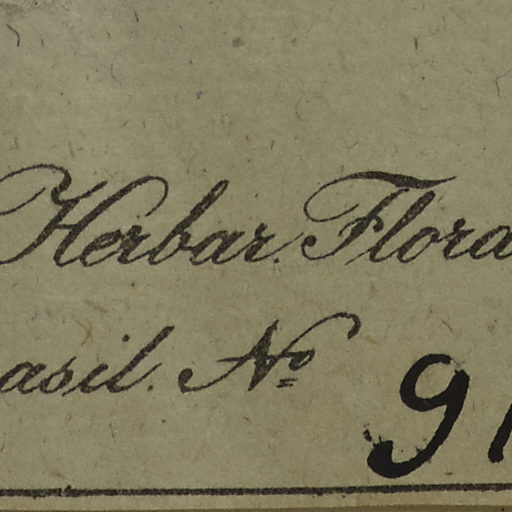 Herbar. Flora
asil. Nº 9